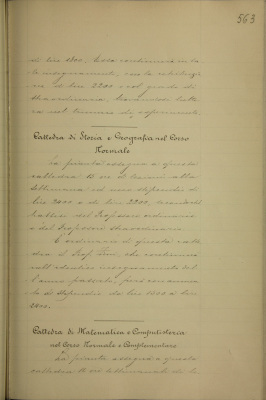 563
di lire 1800. Esso continuerà in ta-
le insegnamento, con la retribuzio-
ne di lire 2200 e col grado di
straordinario,
nel termine di esperimento.
Cattedra di Storia e Geografia nel Corso
Normale
La pianta assegna a questa
cattedra 15 ore di lezioni alla
settimana ed uno stipendio di
lire 2400 o di lire 2200, secondo
trattisi del Professore ordinario
o del Professore straordinario.
È ordinario di questa catte-
dra il Prof. che continuerà
nell' insegnamento del-
l'anno passato,
lo stipendio da lire 1800 a lire
2400.
Cattedra di Matematica e Computisteria
nel Corso Normale e Complementare
La pianta assegna a questa
cattedra ore settimanali di le-